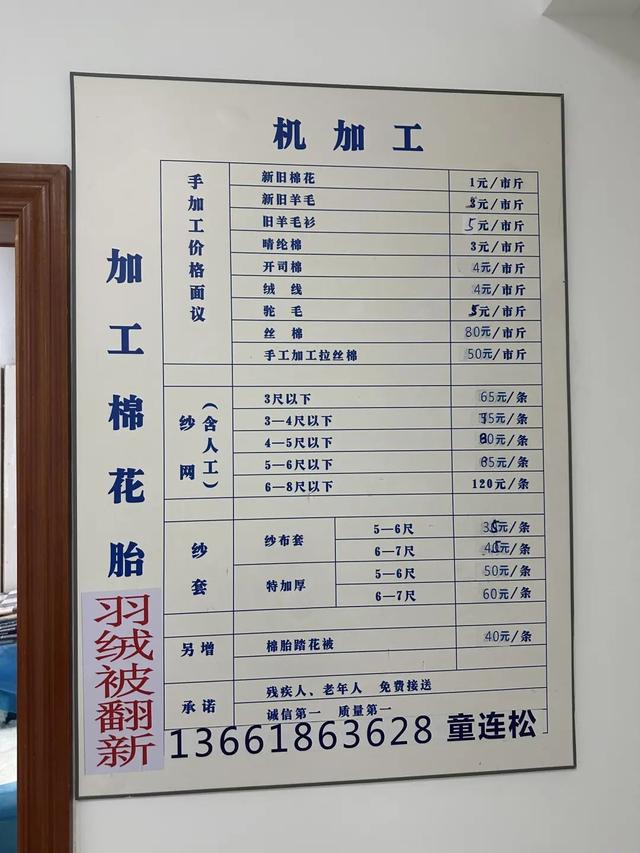 机加工
加工棉花胎
羽绒被翻新
手加工价格面议
新旧棉花 1元/市斤
新旧羊毛 元/市斤
旧羊毛衫 5元/市斤
晴纶棉 3元/市斤
开司棉 4元/市斤
绒 线 4元/市斤
驼 毛 5元/市斤
丝 棉 80元/市斤
手工加工拉丝棉 50元/市斤
纱网(含人工)
3尺以下 65元/条
3—4尺以下 元/条
4—5尺以下 元/条
5—6尺以下 85元/条
6—8尺以下 120元/条
纱套
纱布套 5—6尺 35元/条
6—7尺 45元/条
特加厚 5—6尺 50元/条
6—7尺 60元/条
另增 棉胎踏花被 40元/条
承诺 残疾人、老年人 免费接送
诚信第一 质量第一
13661863628 童连松